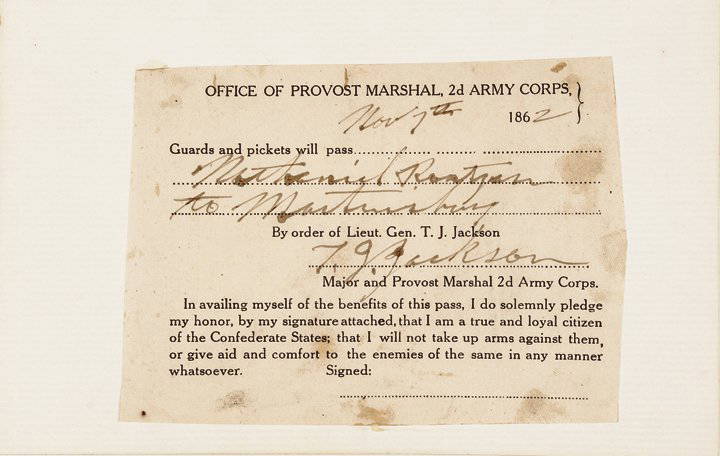 OFFICE OF PROVOST MARSHAL, 2d ARMY CORPS,
Nov 7th 1862
Guards and pickets will pass
Nathaniel
to Martinsburg
By order of Lieut. Gen. T. J. Jackson
T. J. Jackson
Major and Provost Marshal 2d Army Corps.
In availing myself of the benefits of this pass, I do solemnly pledge
my honor, by my signature attached, that I am a true and loyal citizen
of the Confederate States; that I will not take up arms against them,
or give aid and comfort to the enemies of the same in any manner
whatsoever. Signed: